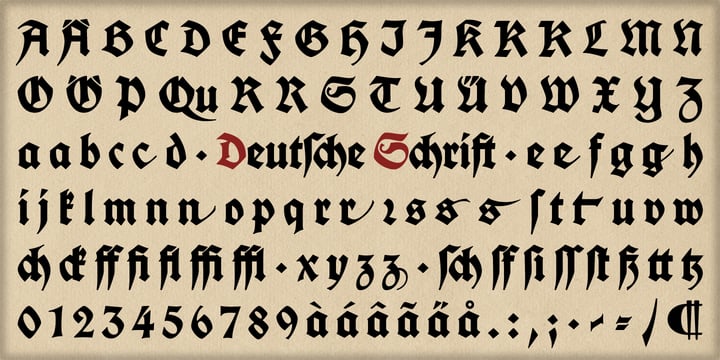 A Ä B C D E F G H I J K K K L M N
O Ö P Qu R R S T U Ü V W X Y Z
a a b c c d · Deutſche Schrift · e e f g g h
i j k l m n n o p q r r ꝛ s s s ſ t t u v w
ch ck ff fi fl ffi ffl · x y z z · ſch ſf ſi ſſ ſt ß tt tz
0 1 2 3 4 5 6 7 8 9 à á â ã ä å . : , ; · - = / ¶